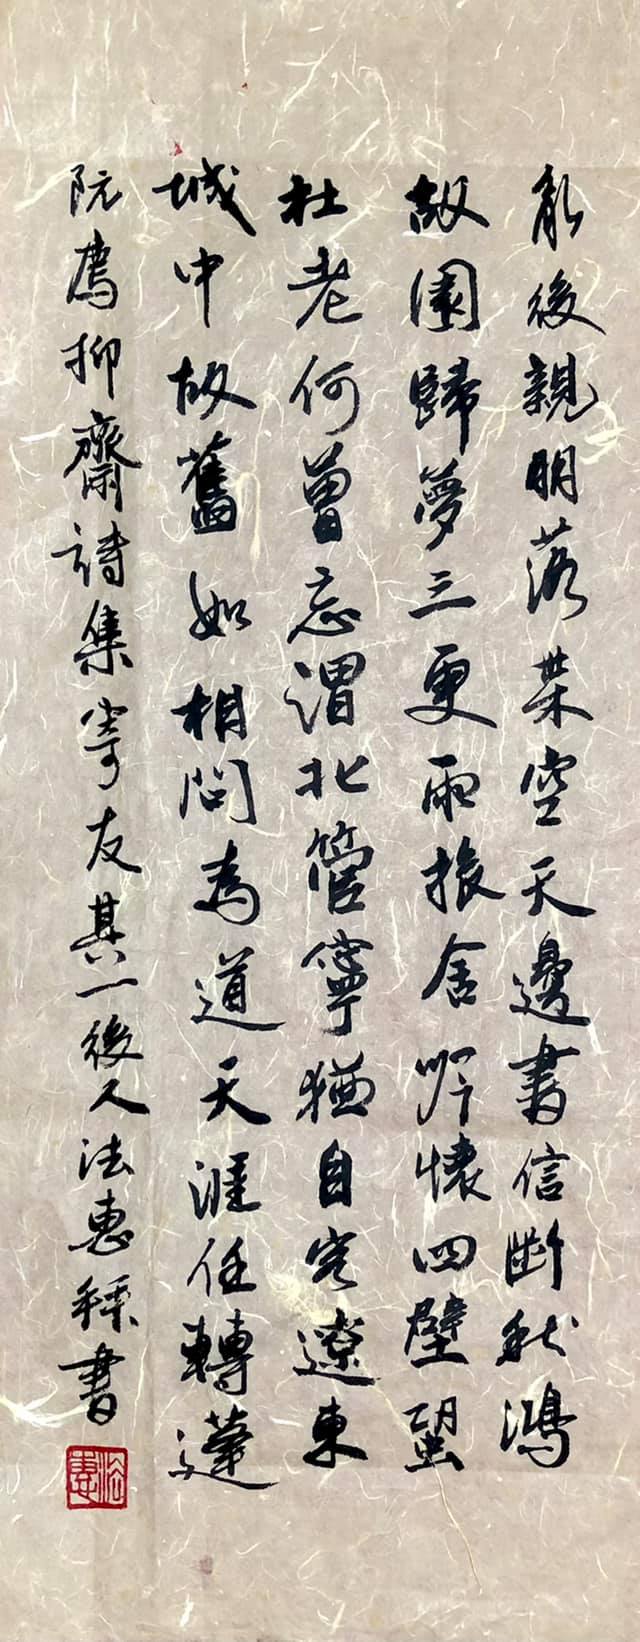 亂後親朋落葉空天邊書信斷秋鴻
故園歸夢三更雨旅舍吟懷四壁蛩
杜老何曾忘渭北管寧猶自客遼東
城中故舊如相問為道天涯任轉蓬
阮廌抑齋詩集寄友其一後人法惠書
法惠